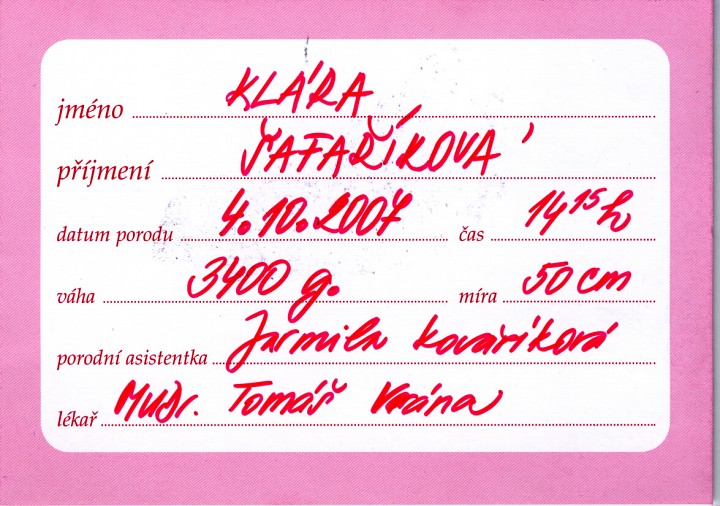 jméno KLÁRA
příjmení ŠAFAŘÍKOVÁ
datum porodu 4.10.2007 čas 14 15 h
váha 3400 g. míra 50 cm
porodní asistentka Jarmila Kovaříková
lékař MUDr. Tomáš Vrána